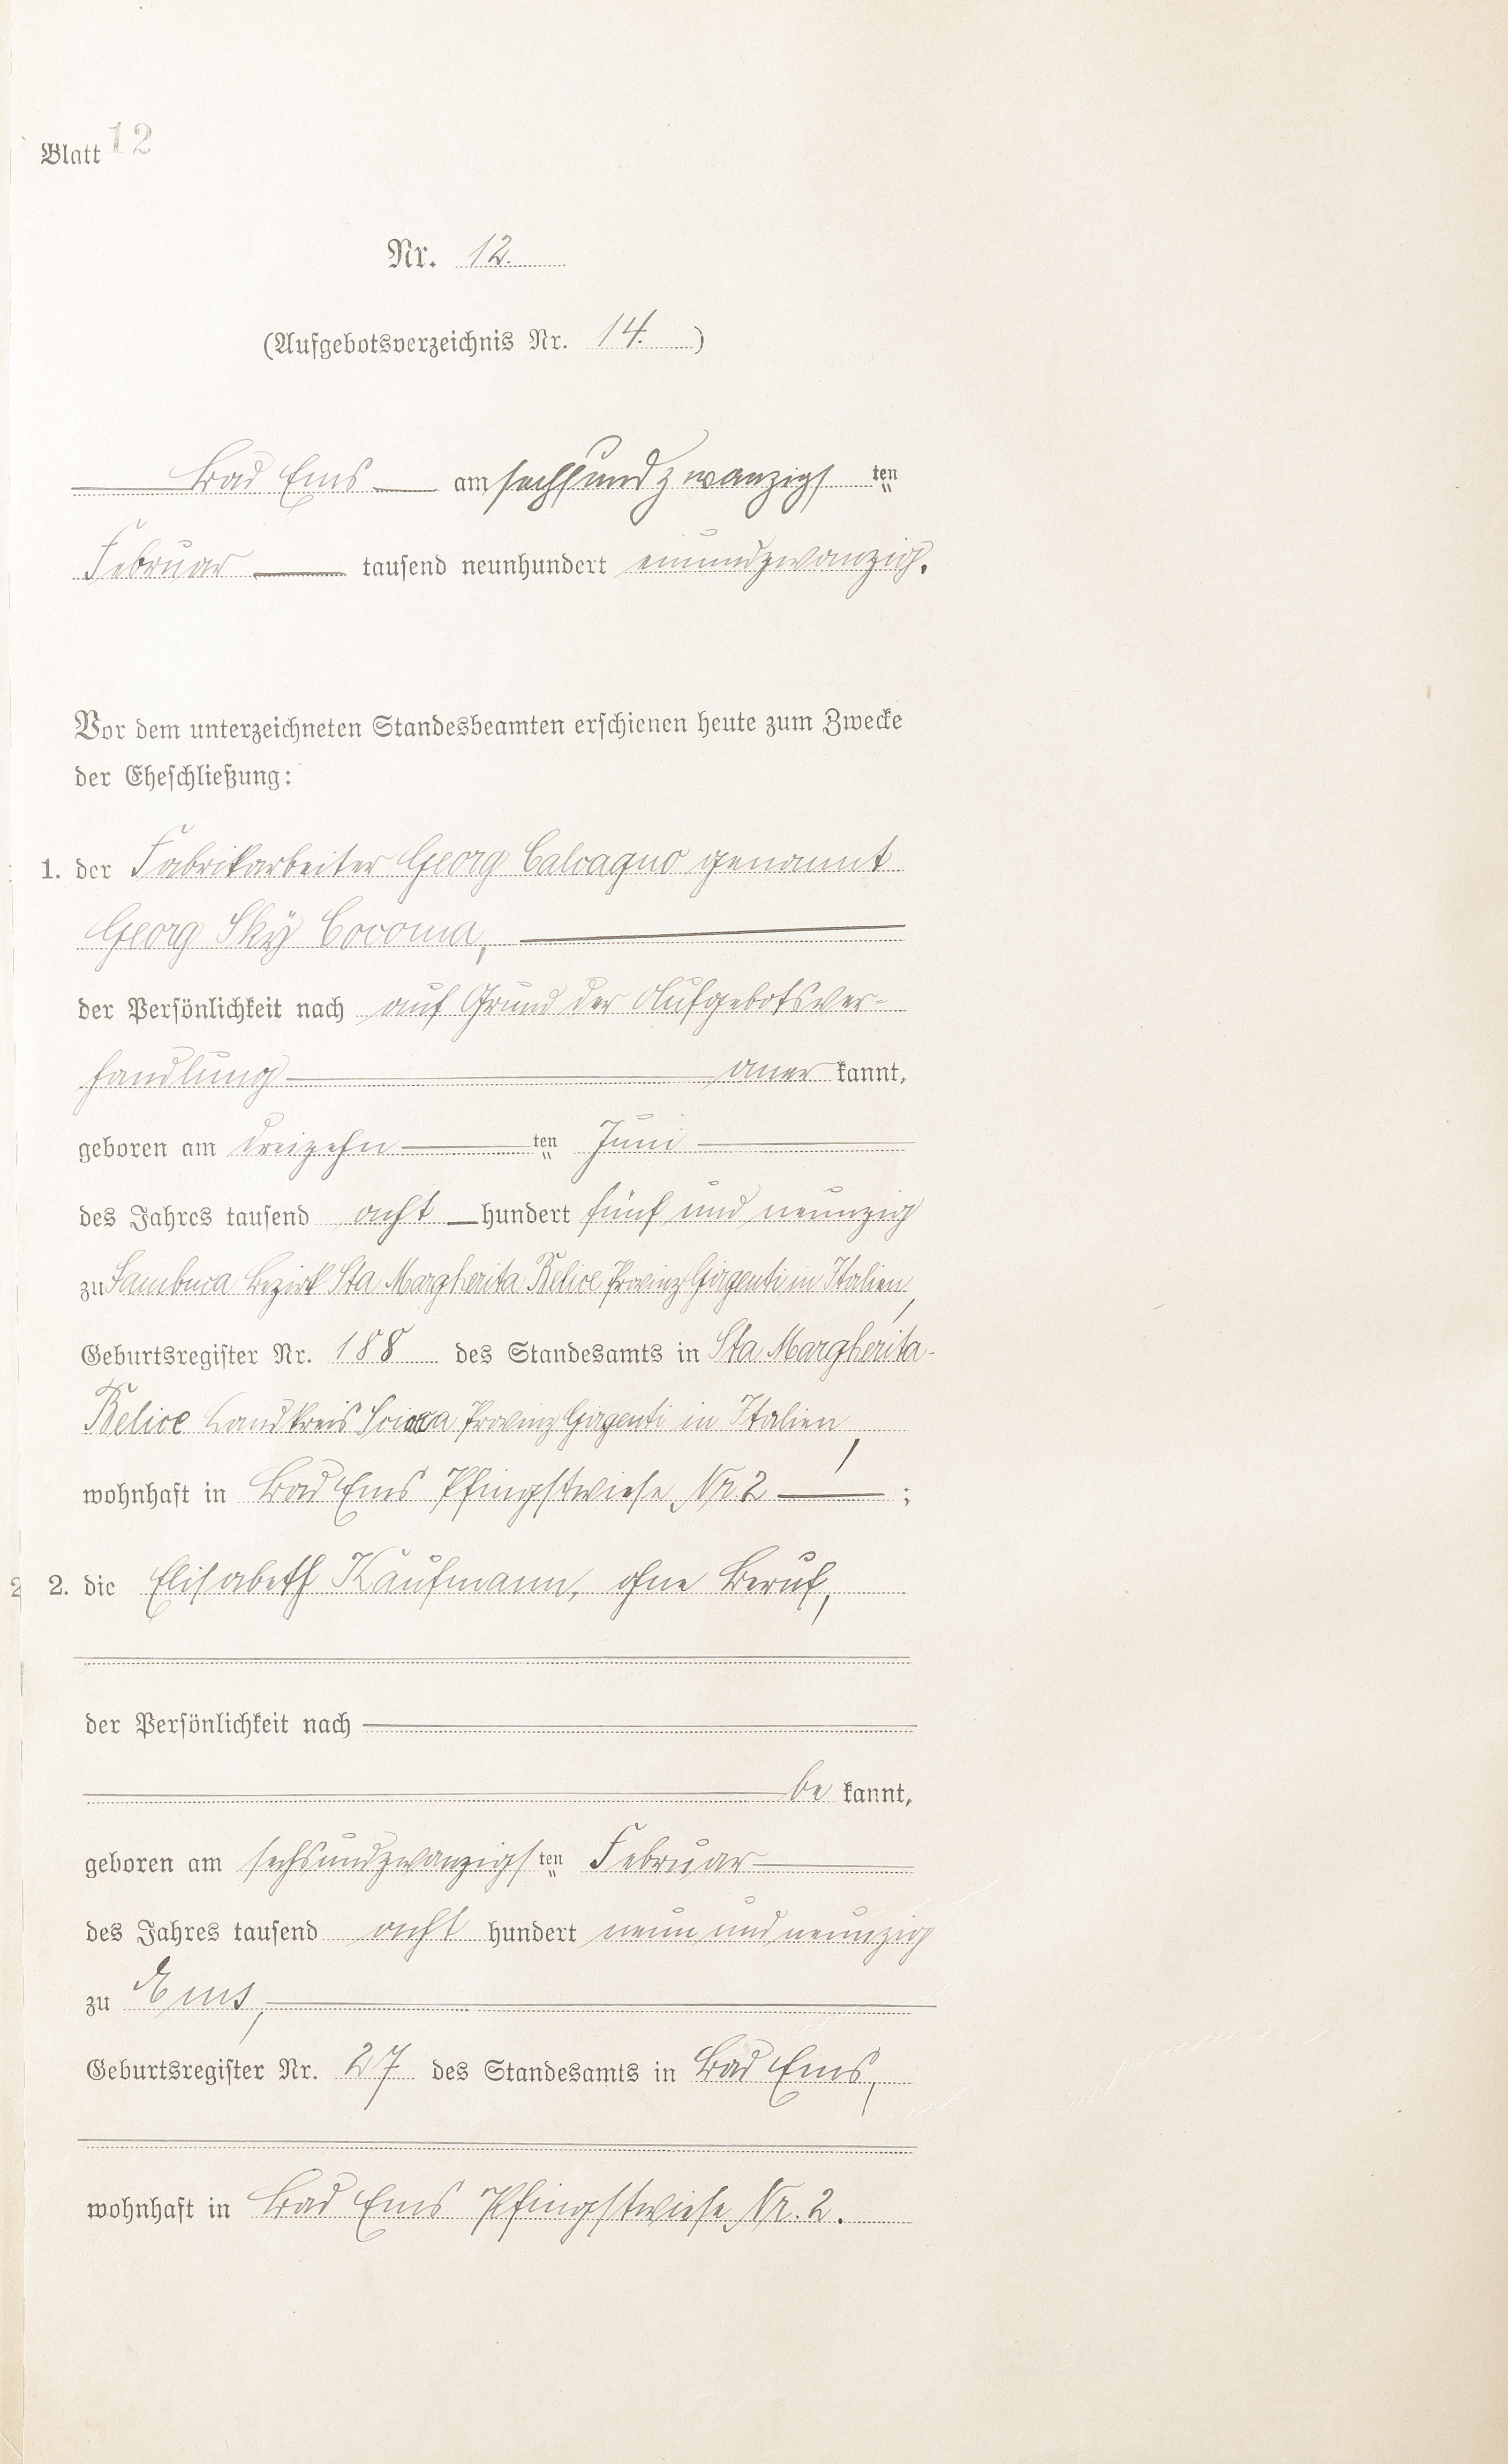 Blatt 12
Nr. 12.
(Aufgebotsverzeichnis Nr. 14.)
Bad Ems am sechsundzwanzigsten
Februar tausend neunhundert einundzwanzig.
Vor dem unterzeichneten Standesbeamten erschienen heute zum Zwecke
der Eheschließung:
1. der Fabrikarbeiter Georg Calvagno genannt
Georg Sky Cocoma,
der Persönlichkeit nach auf Grund der Aufgebotsver-
handlung aner kannt,
geboren am dreizehn ten Juni
des Jahres tausend acht hundert fünf und neunzig
zu Sambuca Bezirk Sta Margherita Belice Provinz Girgenti in Italien,
Geburtsregister Nr. 188 des Standesamts in Sta Margherita-
Belice Landkreis Sciacca Provinz Girgenti in Italien,
wohnhaft in Bad Ems Pfingstwiese Nr. 2 ;
2. die Elisabeth Kaufmann, ohne Beruf,
der Persönlichkeit nach
be kannt,
geboren am sechsundzwanzigsten Februar
des Jahres tausend acht hundert neun und neunzig
zu Ems,
Geburtsregister Nr. 27 des Standesamts in Bad Ems,
wohnhaft in Bad Ems Pfingstwiese Nr. 2.